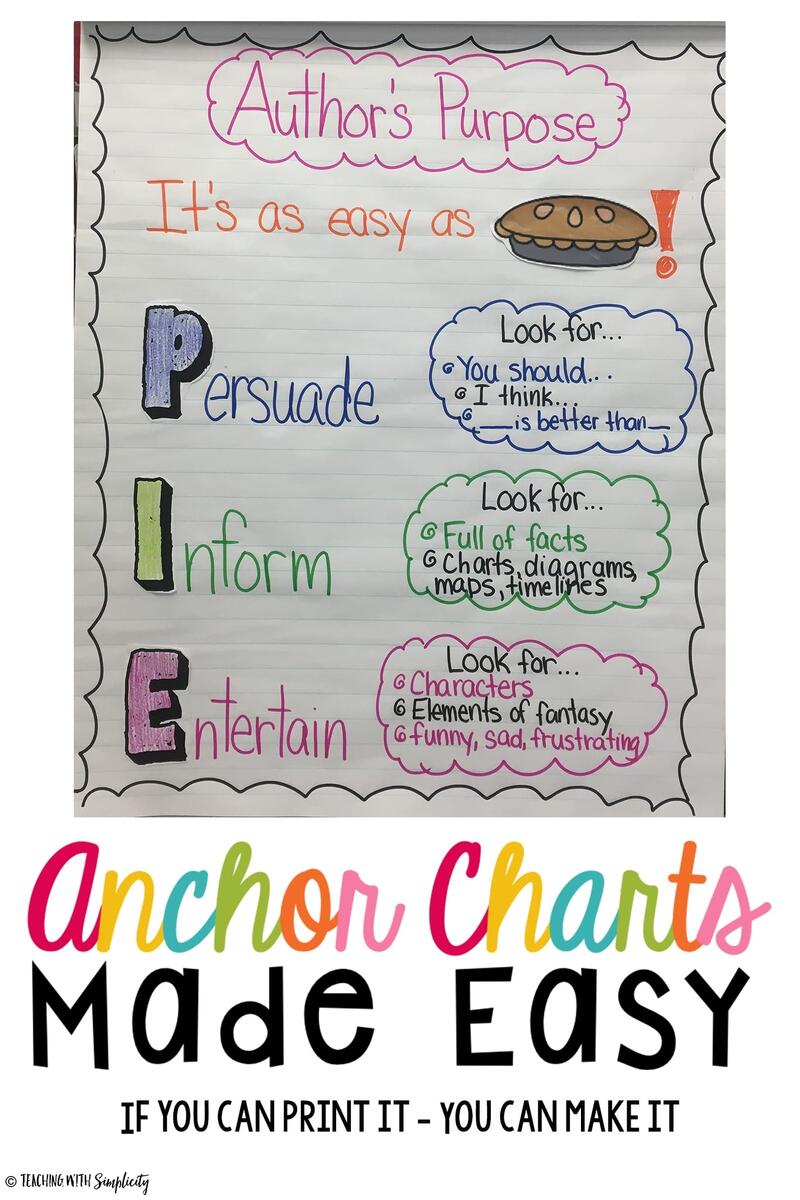 Author's Purpose
It's as easy as !
Persuade
Look for...
You should...
I think...
__is better than__
Inform
Look for...
Full of facts
Charts, diagrams,
maps, timelines
Entertain
Look for...
Characters
Elements of fantasy
funny, sad, frustrating
Anchor Charts
Made Easy
IF YOU CAN PRINT IT - YOU CAN MAKE IT
© TEACHING WITH Simplicity